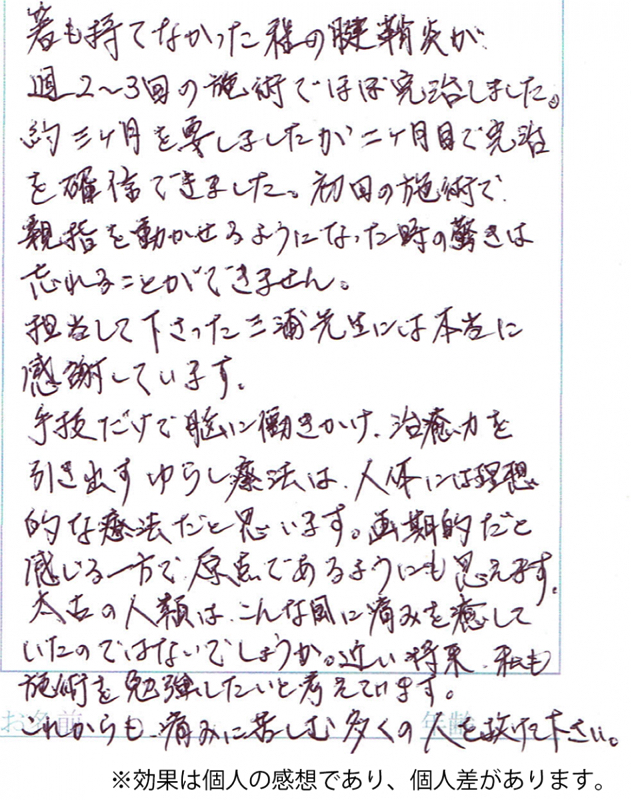 箸も持てなかった程の腱鞘炎が
週2〜3回の施術でほぼ完治しました。
約三ヶ月を要しましたが二ヶ月目で完治
を確信できました。初回の施術で、
親指を動かせるようになった時の驚きは
忘れることができません。
担当して下さった三浦先生には本当に
感謝しています。
手技だけで脳に働きかけ、治癒力を
引き出すゆらし療法は、人体には理想
的な療法だと思います。画期的だと
感じる一方で、原点であるようにも思えます。
太古の人類は、こんな風に痛みを癒して
いたのではないでしょうか。近い将来、私も
施術を勉強したいと考えています。
お名前 年齢
これからも、痛みに苦しむ多くの人を救けて下さい。
※効果は個人の感想であり、個人差があります。